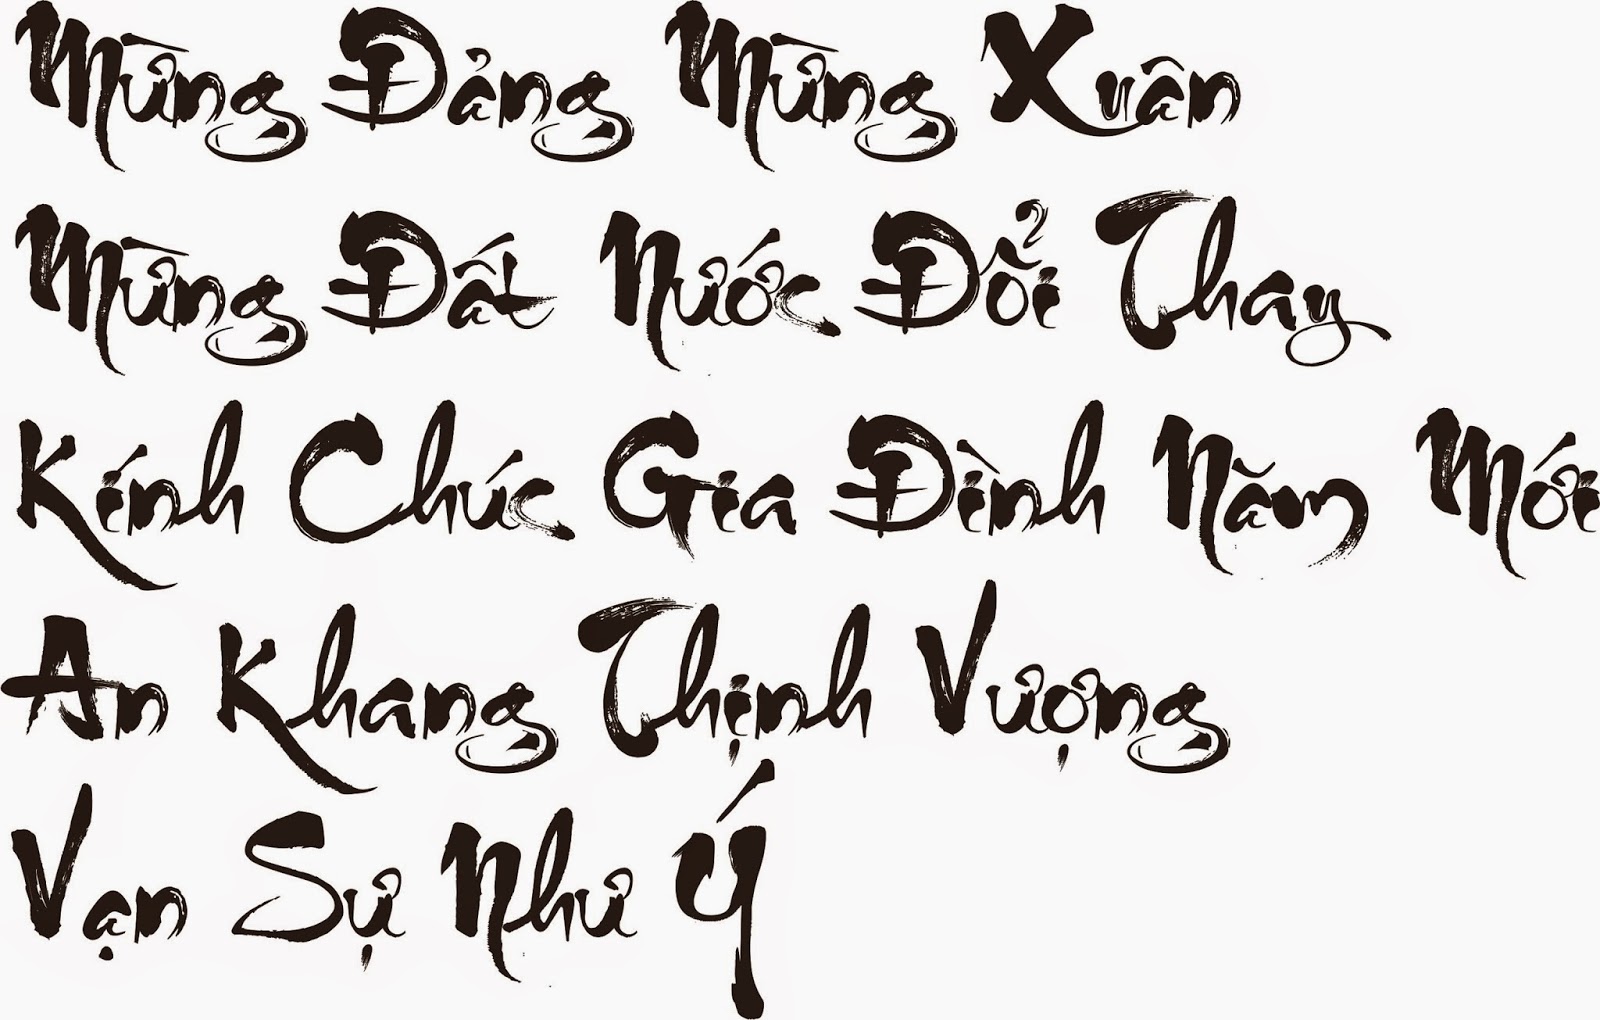 Mừng Đảng Mừng Xuân
Mừng Đất Nước Đổi Thay
Kính Chúc Gia Đình Năm Mới
An Khang Thịnh Vượng
Vạn Sự Như Ý